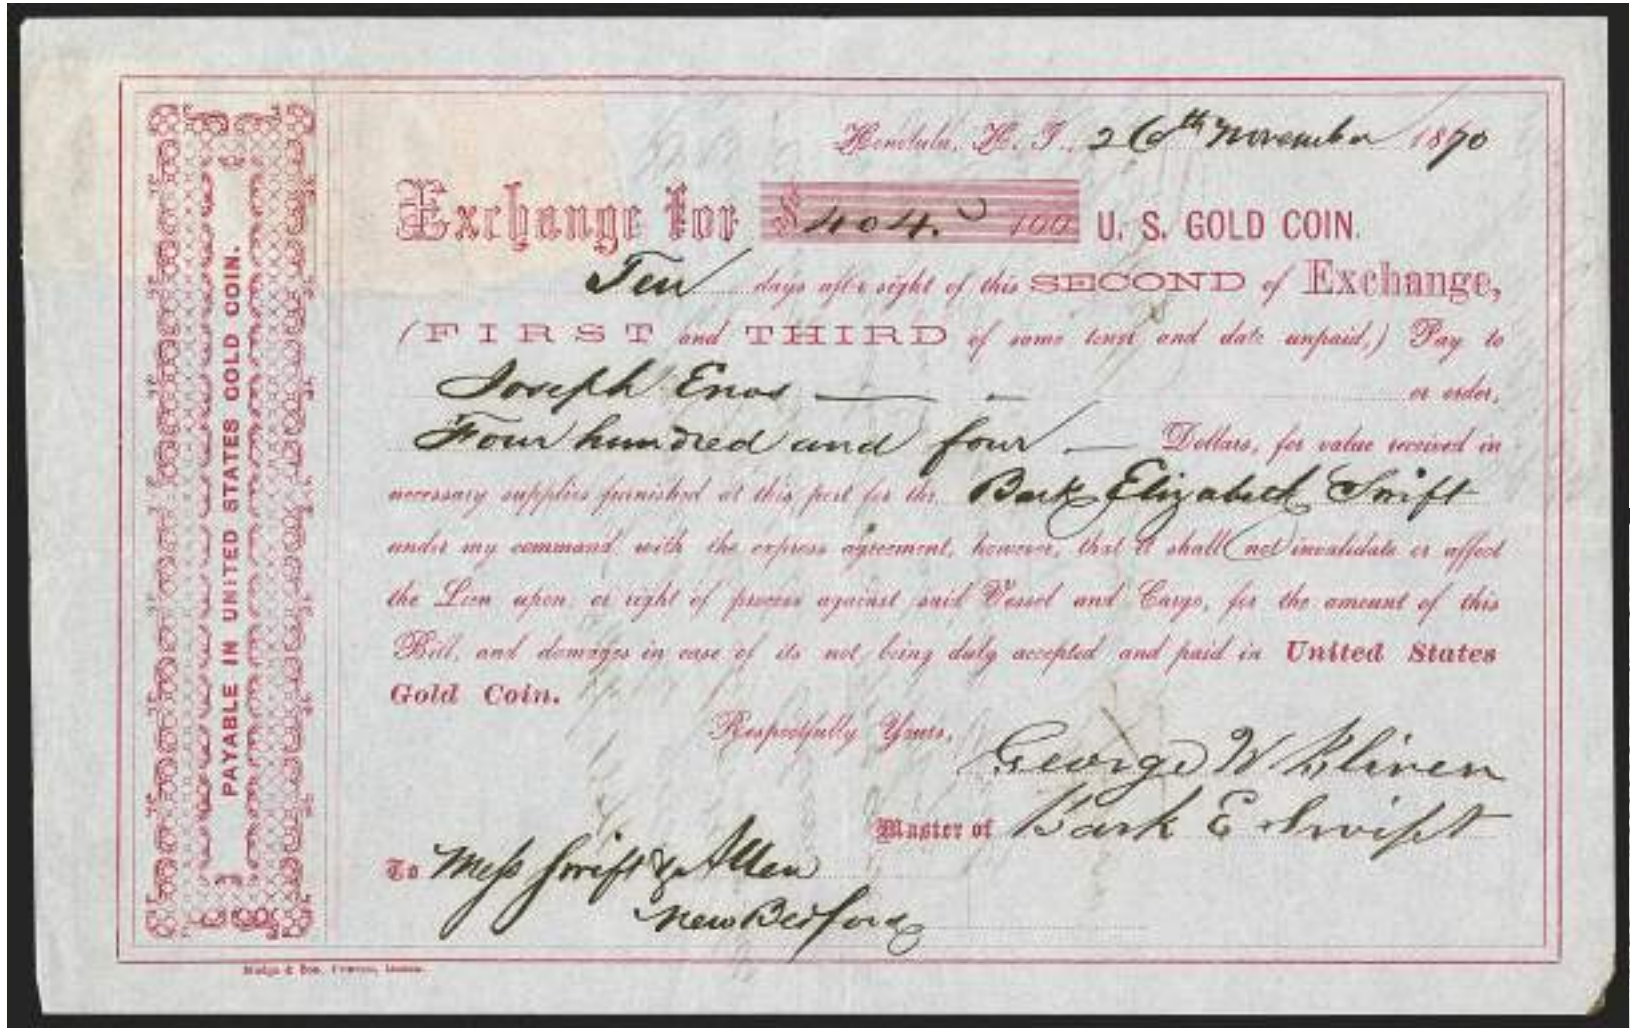 Honolulu, H. I., 26th November 1870
Exchange for $404. 100 U. S. GOLD COIN.
Ten days after sight of this SECOND of Exchange,
(FIRST and THIRD of same tenor and date unpaid,) Pay to
Joseph Enos — — or order,
Four hundred and four — Dollars, for value received in
necessary supplies furnished at this port for the Bark Elizabeth Swift
under my command, with the express agreement, however, that it shall (not) invalidate or affect
the Lien upon, or right of process against said Vessel and Cargo, for the amount of this
Bill, and damages in case of its not being duly accepted and paid in United States
Gold Coin.
Respectfully Yours,
George W Bliven
Master of Bark E Swift
To Mess Swift & Allen
New Bedford
PAYABLE IN UNITED STATES GOLD COIN.
& Son,